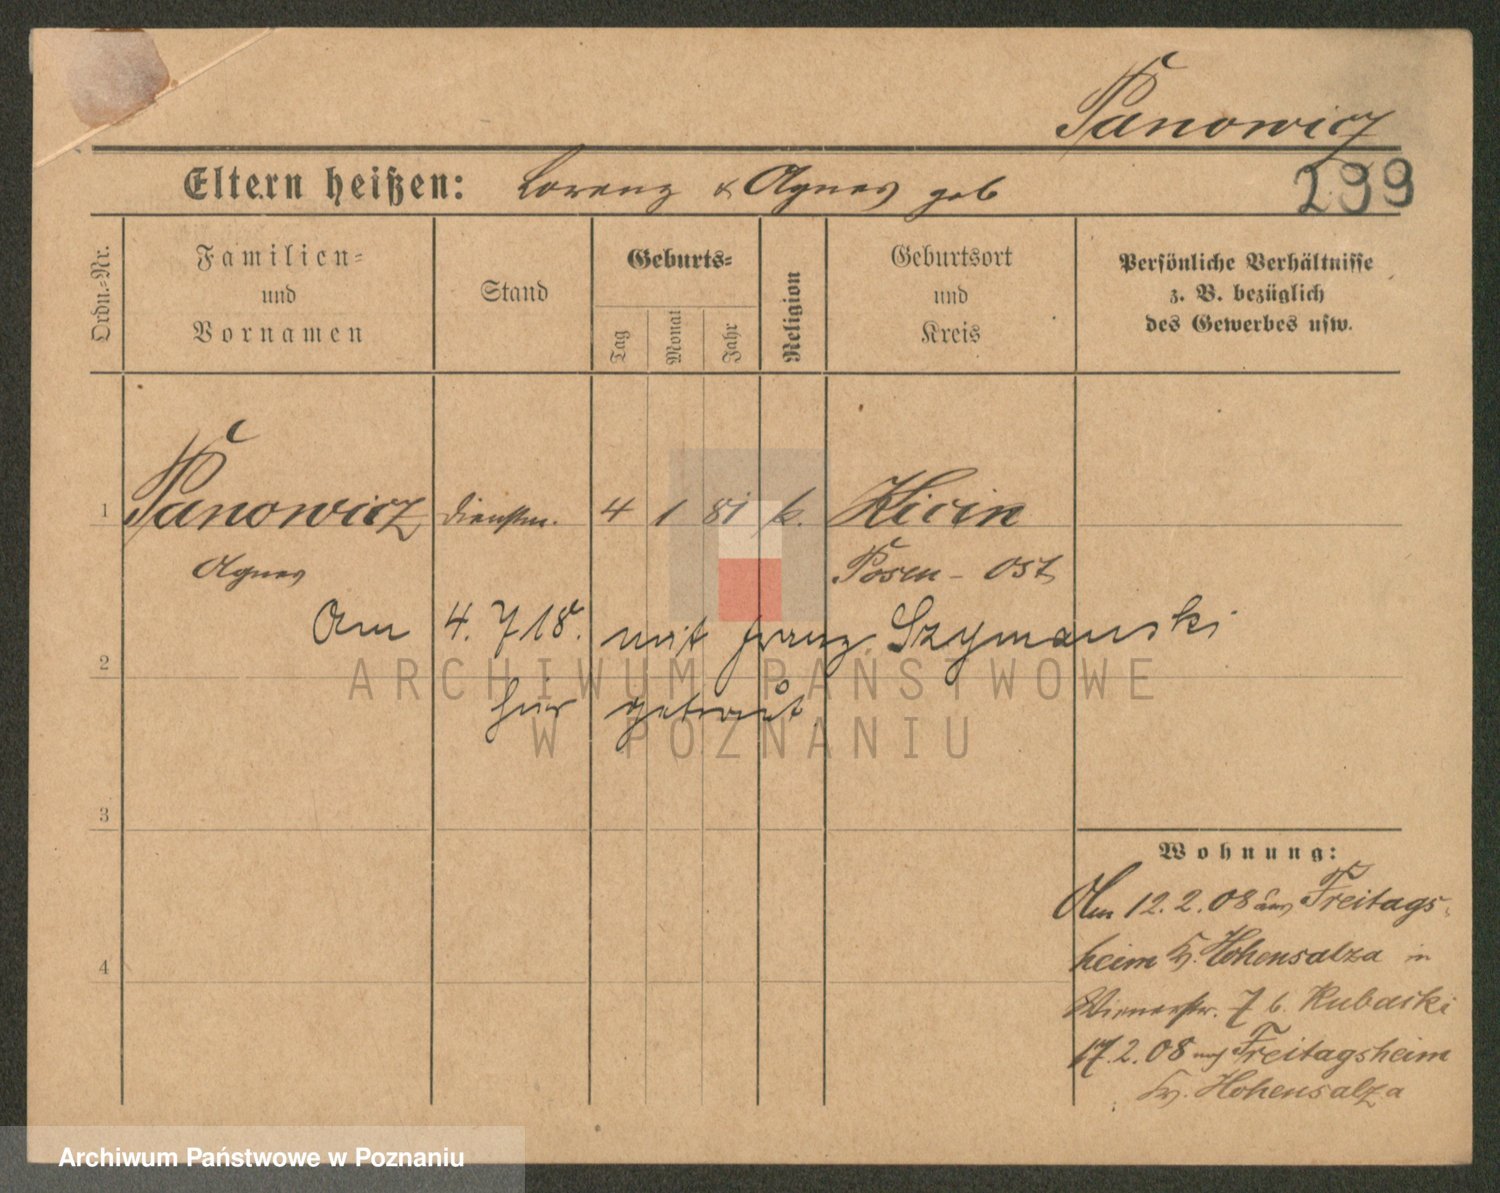 Panowicz
Eltern heißen: Lorenz & Agnes geb
299
Ordn.-Nr.
Familien-
und
Vornamen
Stand
Geburts-
Tag
Monat
Jahr
Religion
Geburtsort
und
Kreis
Persönliche Verhältnisse
z. B. bezüglich
des Gewerbes usw.
1 Panowicz Dienstm. 4 1 81 k. Kicin
Agnes Posen - Ost
Am 4. 7 18. mit Franz Szymanski
2
hier getraut
3
4
Wohnung:
Am 12. 2. 08 aus Freitags-
heim Kr. Hohensalza in
Wienerstr. 7 b. Rubacki
17. 2. 08 nach Freitagsheim
Kr. Hohensalza
ARCHIWUM PAŃSTWOWE
W POZNANIU
Archiwum Państwowe w Poznaniu